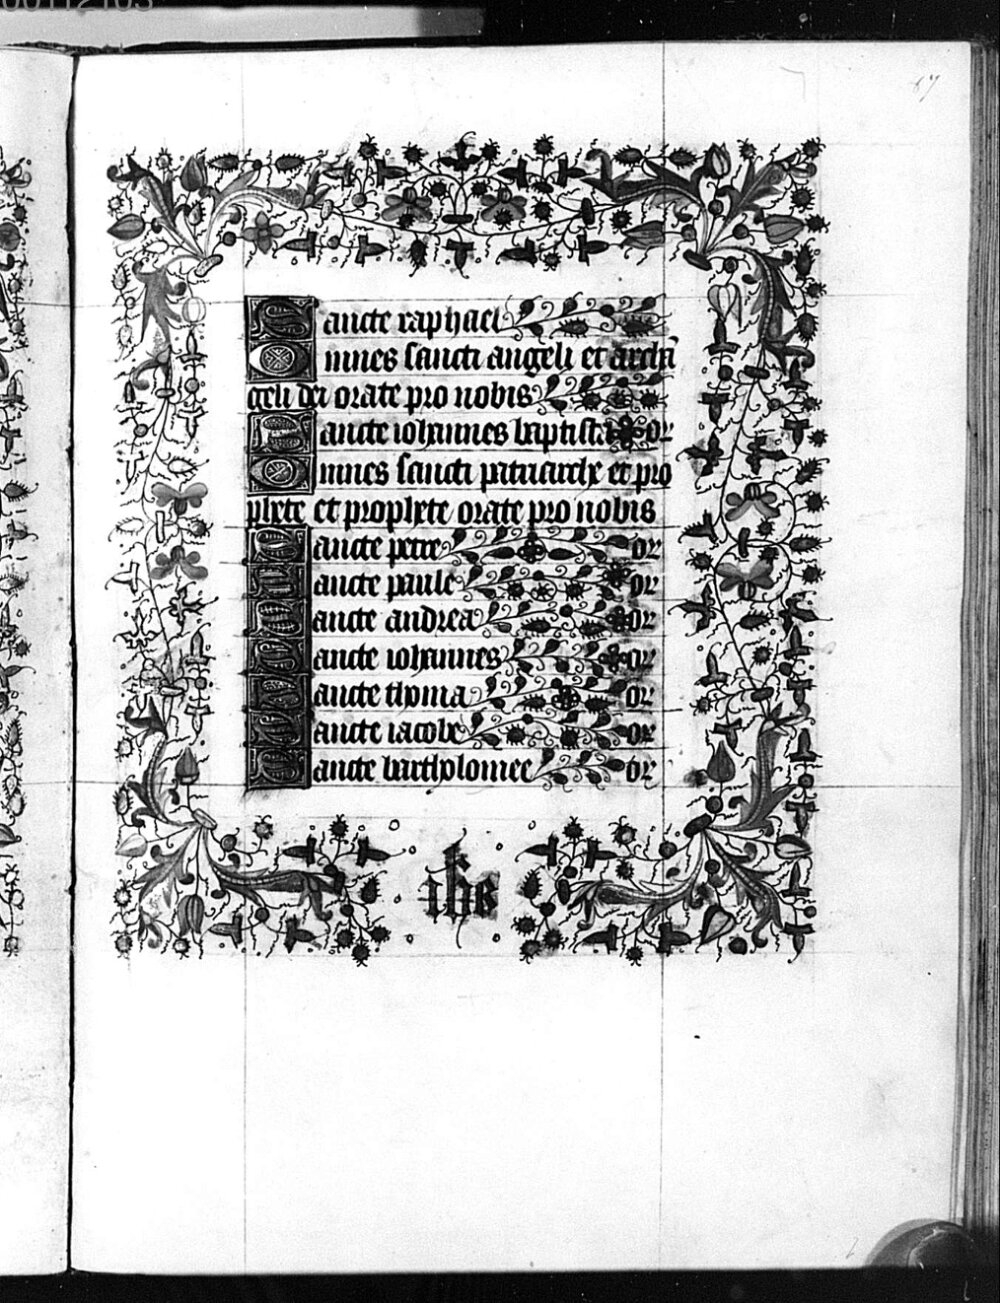 Sancte raphael
Omnes sancti angeli et archā
geli dei orate pro nobis
Sancte iohannes baptista or
Omnes sancti patriarche et pro
phete et prophete orate pro nobis
Sancte petre or
Sancte paule or
Sancte andrea or
Sancte iohannes or
Sancte thoma or
Sancte iacobe or
Sancte bartholomee or
ihs